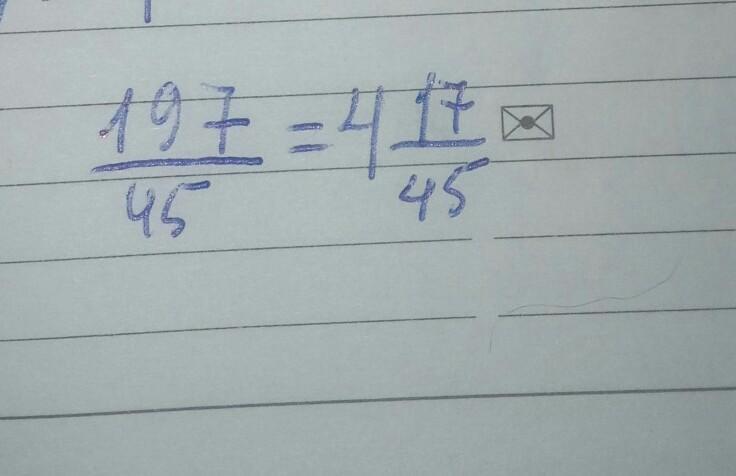 197/45 = 4 17/45